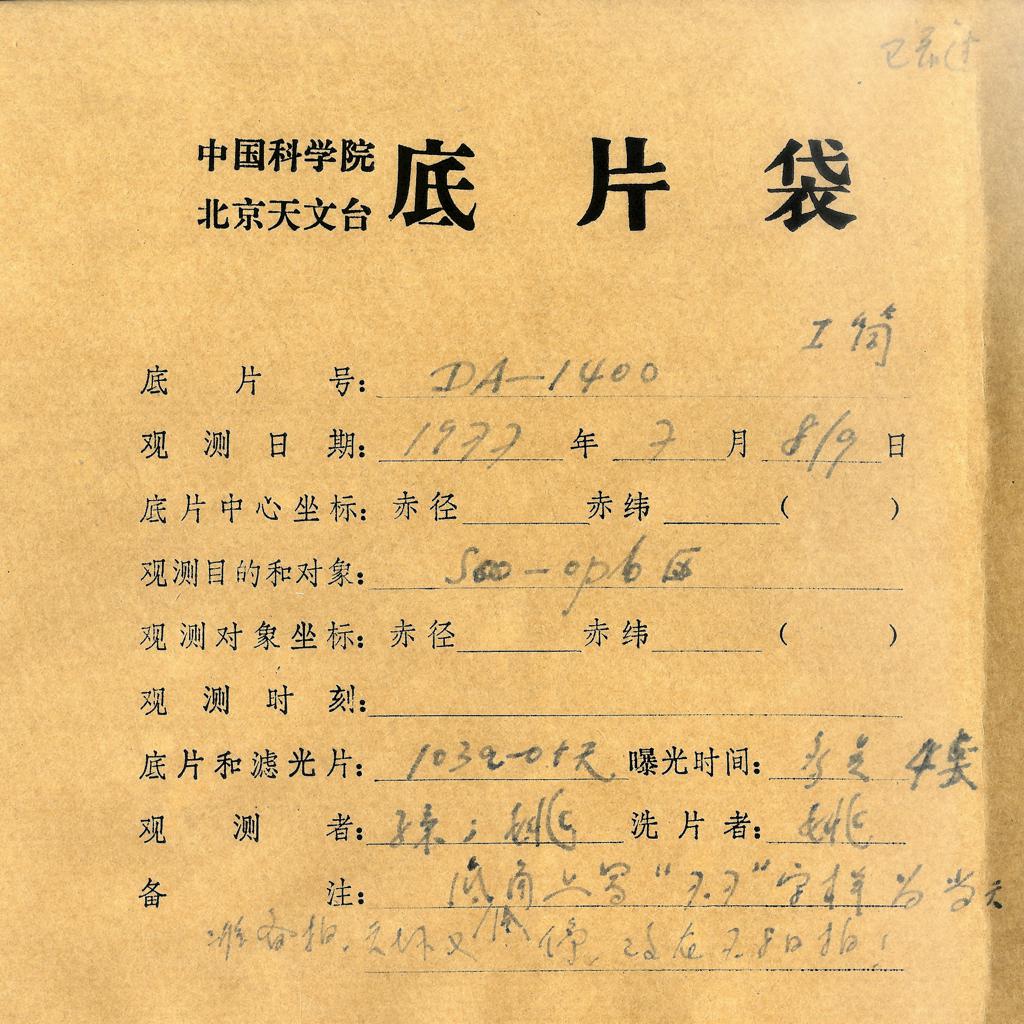 中国科学院
北京天文台 底片袋
I 筒
底片号: DA—1400
观测日期: 1977 年 7 月 8/9 日
底片中心坐标: 赤径 赤纬 ( )
观测目的和对象: Sco-oph 区
观测对象坐标: 赤径 赤纬 ( )
观测时刻:
底片和滤光片: 103a-O+天 曝光时间: 4套
观测者: 姚 洗片者: 姚
备注: 底角上写"7.7"字样为当天
准备拍, 改在7.8日拍!